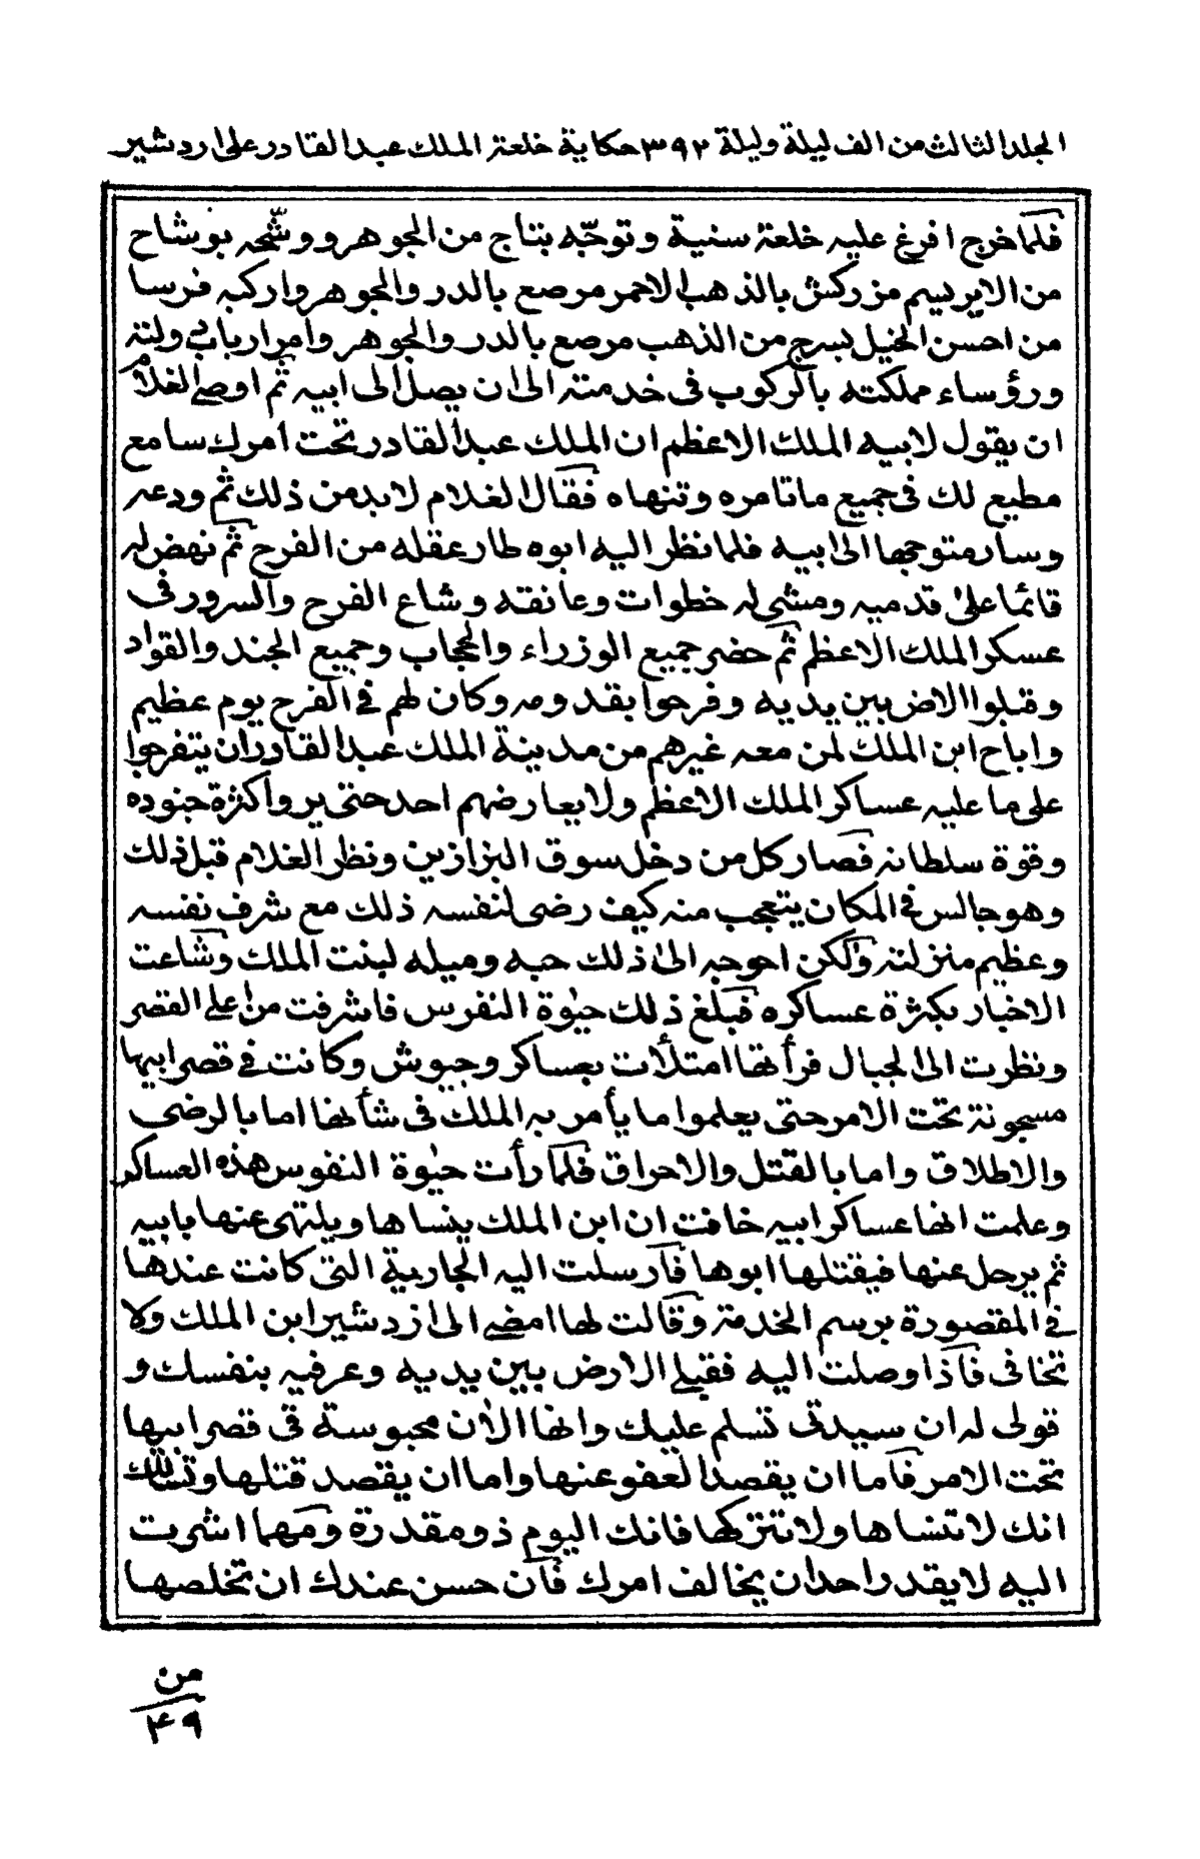 المجلد الثالث من الف ليلة وليلة ٣٩٢ حكاية خلعة الملك عبد القادر على اردشير
فلما خرج افرغ عليه خلعة سنية وتوجّه بتاج من الجوهر ووشّحه بوشاح
من الابريسم مزركش بالذهب الاحمر مرصع بالدر والجوهر واركبه فرسا
من احسن الخيل بسرج من الذهب مرصع بالدر والجوهر وامر ارباب دولته
ورؤساء مملكته بالركوب فى خدمته الى ان يصل الى ابيه ثم اوصى الغلام
ان يقول لابيه الملك الاعظم ان الملك عبد القادر تحت امرك سامع
مطيع لك فى جميع ما تامره وتنهاه فقال الغلام لابد من ذلك ثم ودعه
وسار متوجها الى ابيه فلما نظر اليه ابوه طار عقله من الفرح ثم نهض له
قائما على قدميه ومشى له خطوات وعانقه وشاع الفرح والسرور فى
عسكر الملك الاعظم ثم حضر جميع الوزراء والحجاب وجميع الجند والقواد
وقبلوا الارض بين يديه وفرحوا بقدومه وكان لهم فى الفرح يوم عظيم
واباح ابن الملك لمن معه غيرهم من مدينة الملك عبد القادر ان يتفرجوا
على ما عليه عساكر الملك الاعظم ولا يعارضهم احد حتى يروا كثرة جنوده
وقوة سلطانه فصار كل من دخل سوق البزازين ونظر الغلام قبل ذلك
وهو جالس فى المكان يتعجب منه كيف رضى لنفسه ذلك مع شرف نفسه
وعظيم منزلته ولكن احوجه الى ذلك حبه وميله لبنت الملك وشاعت
الاخبار بكثرة عساكره فبلغ ذلك حيٰوة النفوس فاشرفت من اعلى القصر
ونظرت الى الجبال فرأتها امتلأت بعساكر وجيوش وكانت فى قصر ابيها
مسجونة تحت الامر حتى يعلموا ما يأمر به الملك فى شأنها اما بالرضى
والاطلاق واما بالقتل والاحراق فلما رأت حيٰوة النفوس هذه العساكر
وعلمت انها عساكر ابيه خافت ان ابن الملك ينساها ويلتهى عنها بابيه
ثم يرحل عنها فيقتلها ابوها فارسلت اليه الجارية التى كانت عندها
فى المقصورة برسم الخدمة وقالت لها امضى الى ازدشير ابن الملك ولا
تخافى فاذا وصلت اليه فقبلى الارض بين يديه وعرفيه بنفسك و
قولى له ان سيدتى تسلم عليك وانها الاٰن محبوسة فى قصر ابيها
تحت الامر فاما ان يقصد العفو عنها واما ان يقصد قتلها وتسألك
انك لا تنساها ولا تتركها فانك اليوم ذو مقدرة ومهما اشرت
اليه لا يقدر احد ان يخالف امرك فان حسن عندك ان تخلصها
من
٤٩